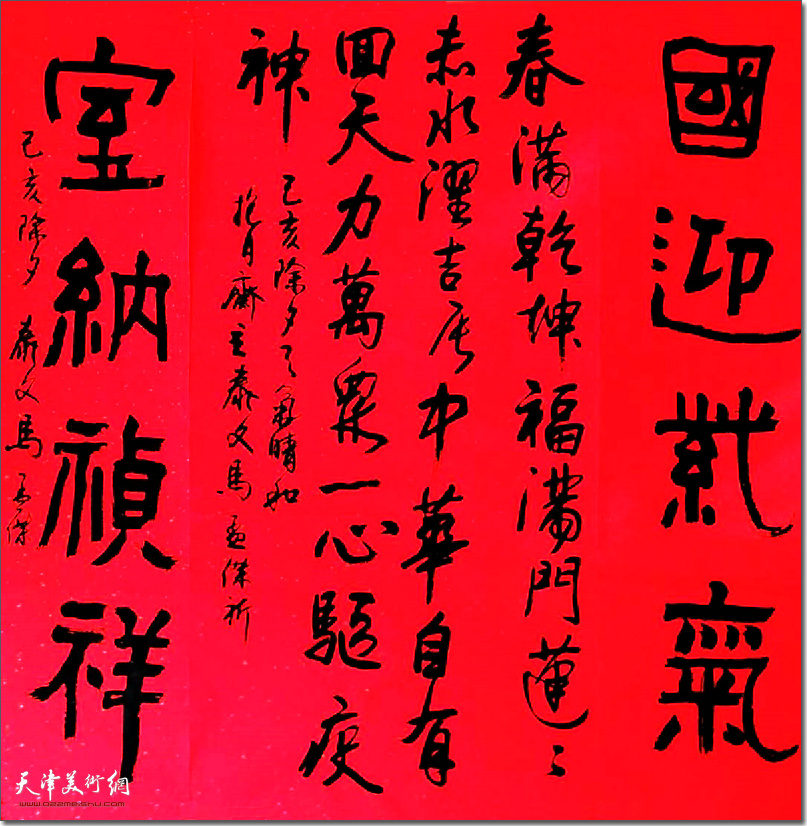 國迎紫氣
春滿乾坤福滿門蓮〻
赤水濯吉辰中華自有
回天力萬衆一心驅疫
神
己亥除夕天氣晴和
抱月齋主泰文馬孟傑祈
室納禎祥
己亥除夕 泰文馬孟傑
天津美術網
www.022meishu.com